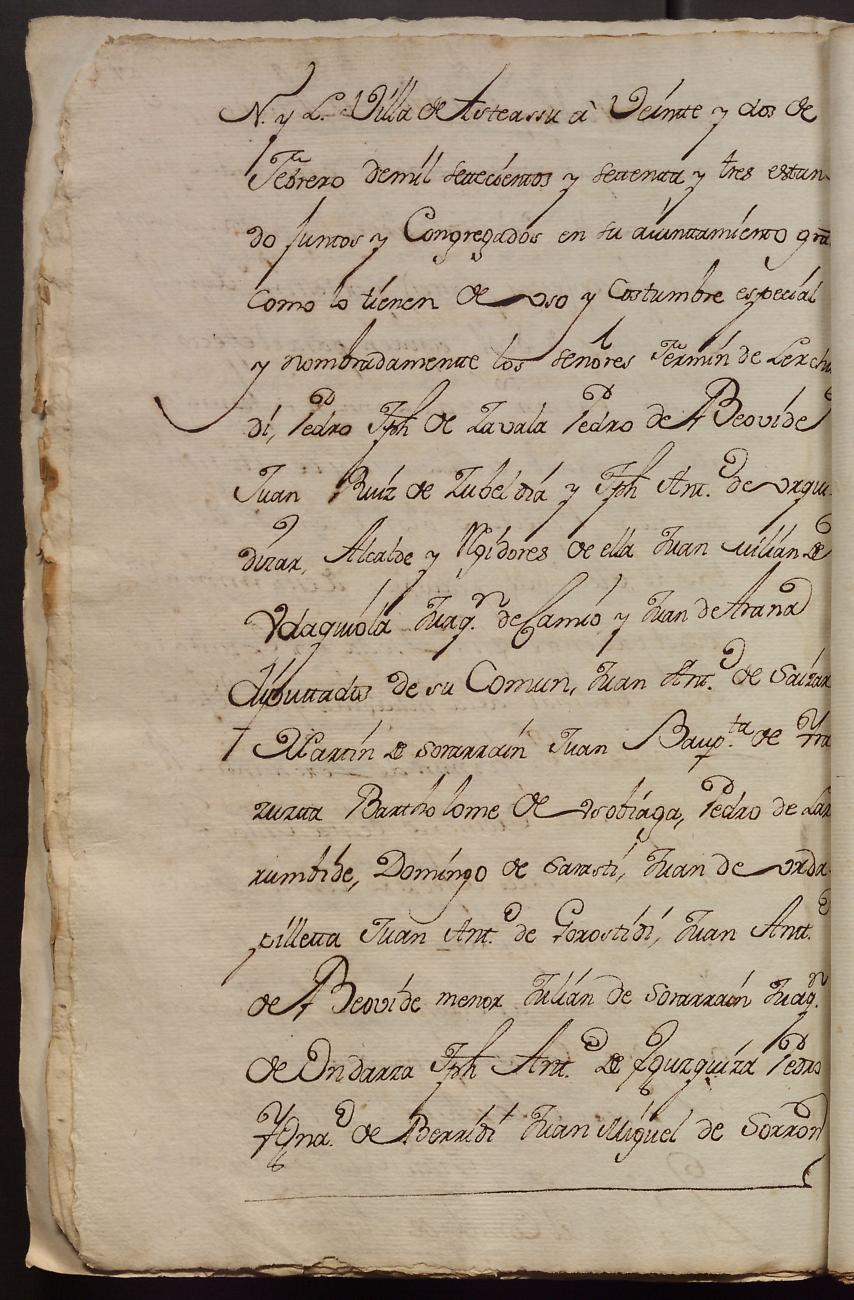 N. y L. Villa de Asteassu à Veinte y dos de
Febrero demil settecientos y settenta y tres estan-
do juntos y Congregados en su aiuntamiento grãl
Como lo tienen de vso y Costumbre especial
y nombradamente los señores Fermin de Lerchu
di, Pedro Jph de Zavala Pedro de A Beovide
Juan Ruiz de Zubeldia y Jph Ant.º de vrqui
dizar, Alcalde y Rxidores de ella Juan Julián de
Vdaguiola Juaq.n de Camio y Juan de Arana
diputtados de su Comun, Juan Ant.º de Saizar
Martin de Sorarrain Juan Baup.ta de Yra
zuzta Bartholome de vsobiaga, Pedro de Lar
rumbide, Domingo de Sarasti, Juan de vrda
pilletta Juan Ant.º de Gorostidi, Juan Antt.º
de A Beovide menor Julián de Sorarrain Juaq.n
de Ondarza Jph Ant.º de Yquzquiza Pedro
Ygna.º de Berridi Juan Miguel de Sorron